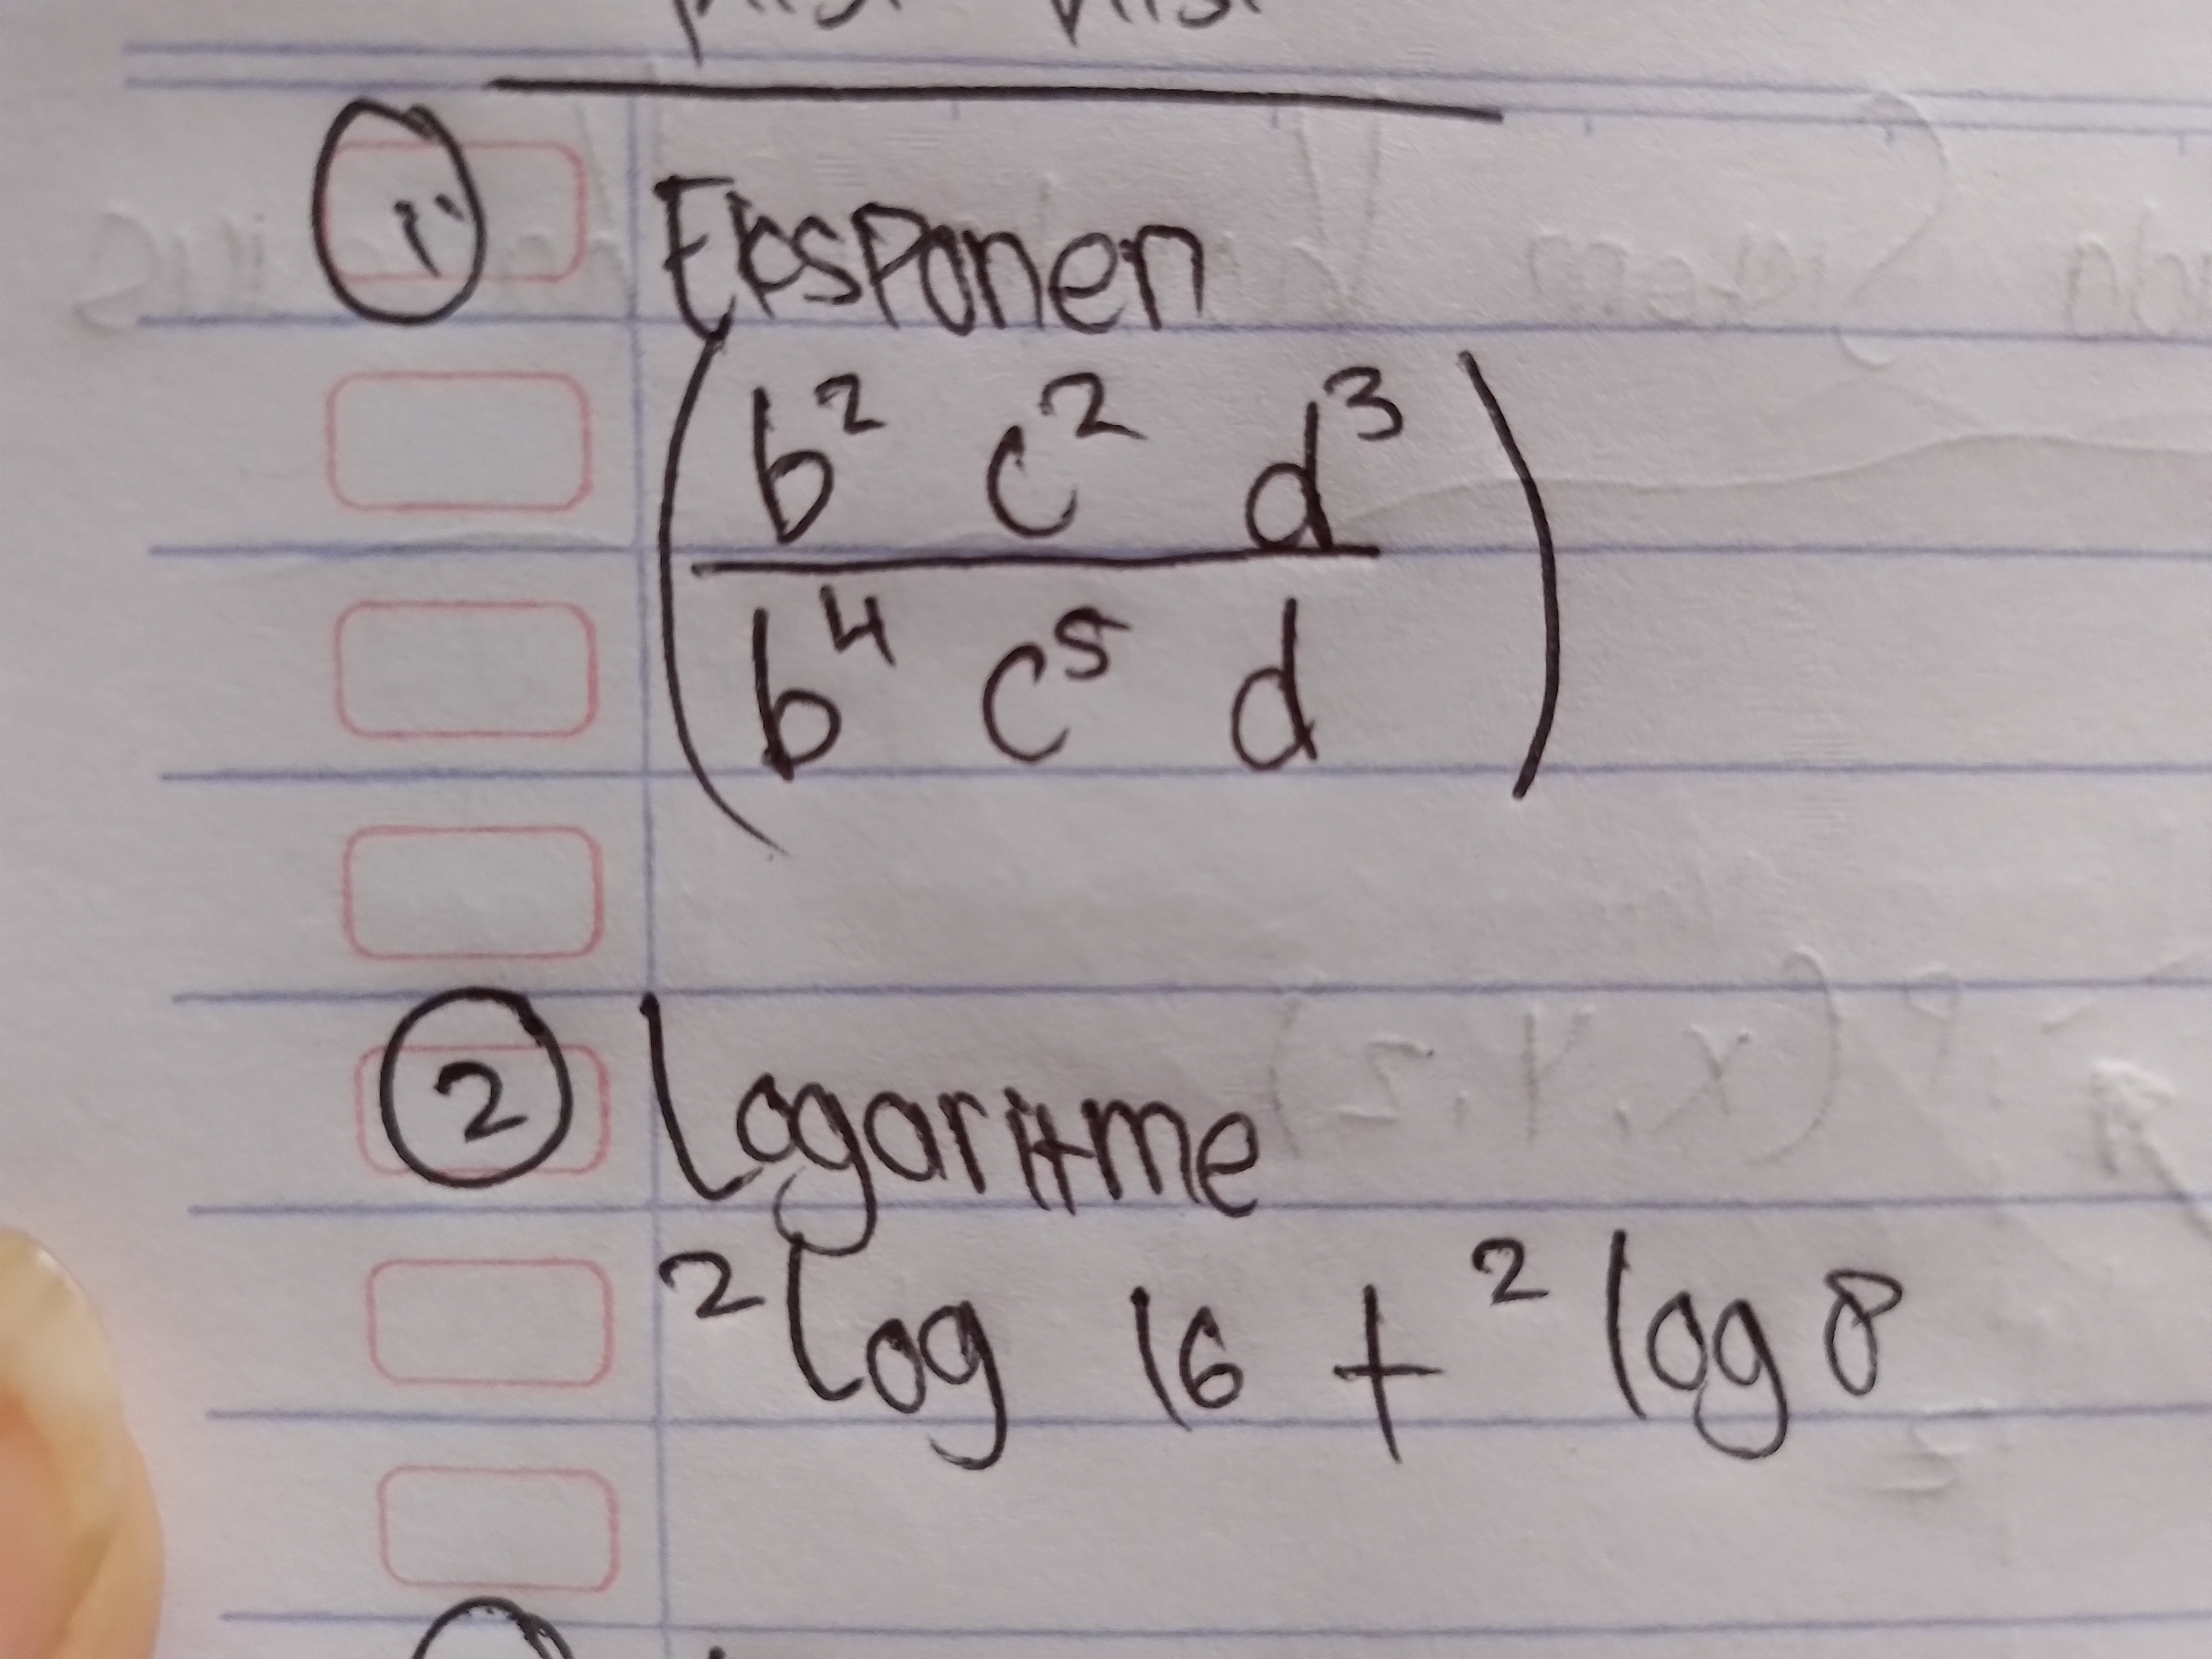 ① Eksponen
(b² c² d³
b⁴ c⁵ d)
② Logaritme
²log 16 + ²log 8